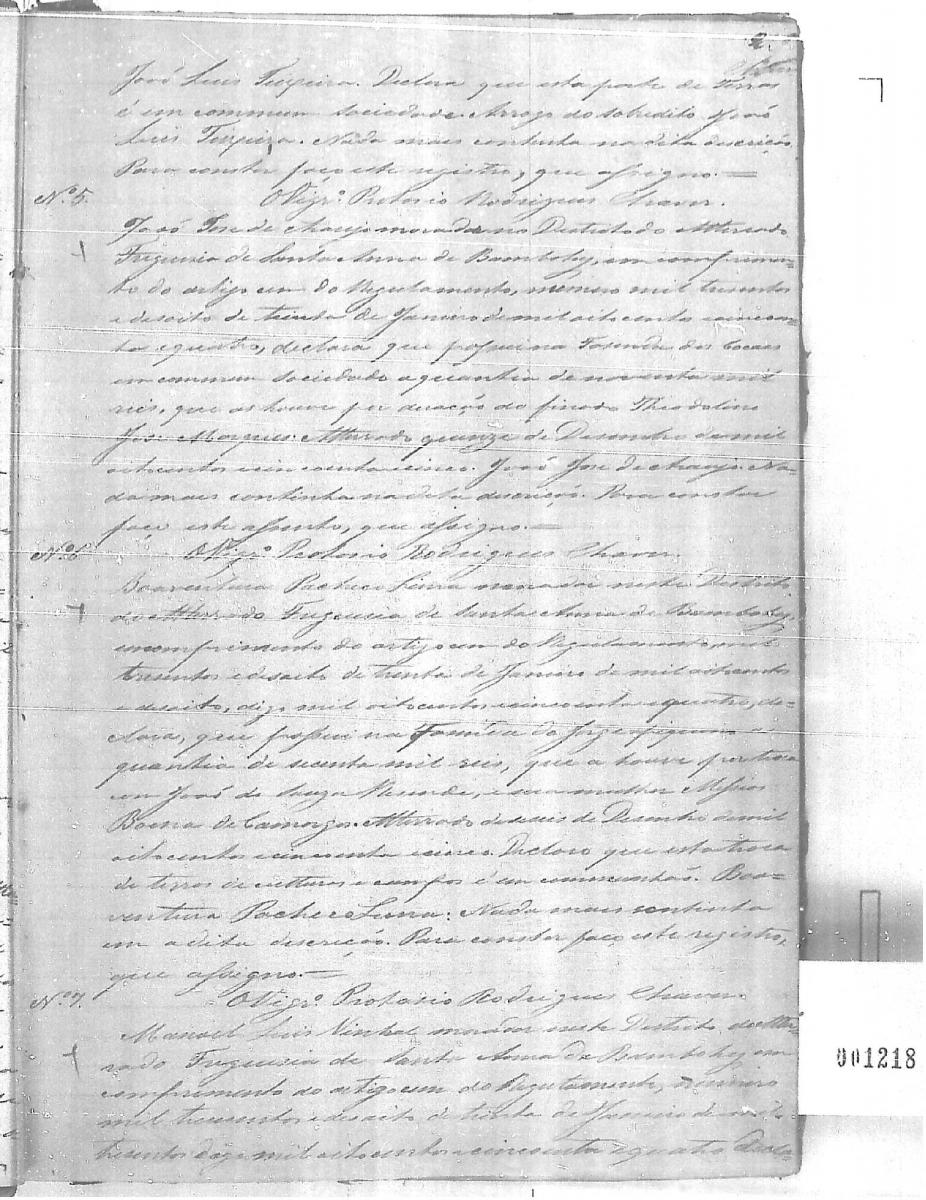 2.
José Luis Teixeira. Declara que esta parte de Terras
é em commum sociedade Arrogo do sobredito José
Luis Teixeira. Nada mais continha na dita descrição.
Para constar faço este registro, que assigno. =
O Vigrº. Protasio Rodrigues Chaves.
Nº. 5.
José José de Araujo morador no Destrito do Atterrado
Freguesia de Santa Anna de Bambohy, em comprimen-
to do artigo cem do Regulamento, numero mil tresentos
e desoito de trinta de Janeiro de mil oitocentos e cincoen-
ta e quatro, declara que possue na Fasenda dos Cocaes
em commum sociedade a quantia de noventa mil
reis, que as houve por doação do finado Theodolino
José Marques. Atterrado quinze de Desembro de mil
oitocentos e cincoenta e cinco. José José de Araujo. Na-
da mais continha na dita descrição. Para constar
faço este assento, que assigno. =
O Vigrº. Protasio Rodrigues Chaves.
Nº. 6.
Boaventura Pacheco Lima morador neste Destrito
do Atterrado Freguesia de Santa Anna de Bambohy,
em comprimento do artigo cem do Regulamento mil
tresentos e desoito de trinta de Janeiro de mil oitocentos
e desoito, digo mil oitocentos e cincoenta e quatro, de-
clara, que possui na
quantia de secenta mil reis, que a houve por troca
com José de Souza Resende, e sua mulher Messias
Boena de Camargos. Atterrado deseseis de Desembro de mil
oitocentos e cincoenta e cinco. Declaro que esta troca
de terras de culturas e campos é em communhão. Boa-
ventura Pacheco Lima: Nada mais continha
em a dita descrição. Para constar faço este registro,
que assigno. =
O Vigrº. Protasio Rodrigues Chaves
Nº. 7.
Manoel Luis Vinhal morador neste Destrito do Atter-
rado Freguesia de Santa Anna de Bambohy, em
comprimento do artigo cem do Regulamento, numero
mil tresentos e desoito de trinta de Janeiro de mil
tresentos digo mil oitocentos e cincoenta e quatro decla-
001218